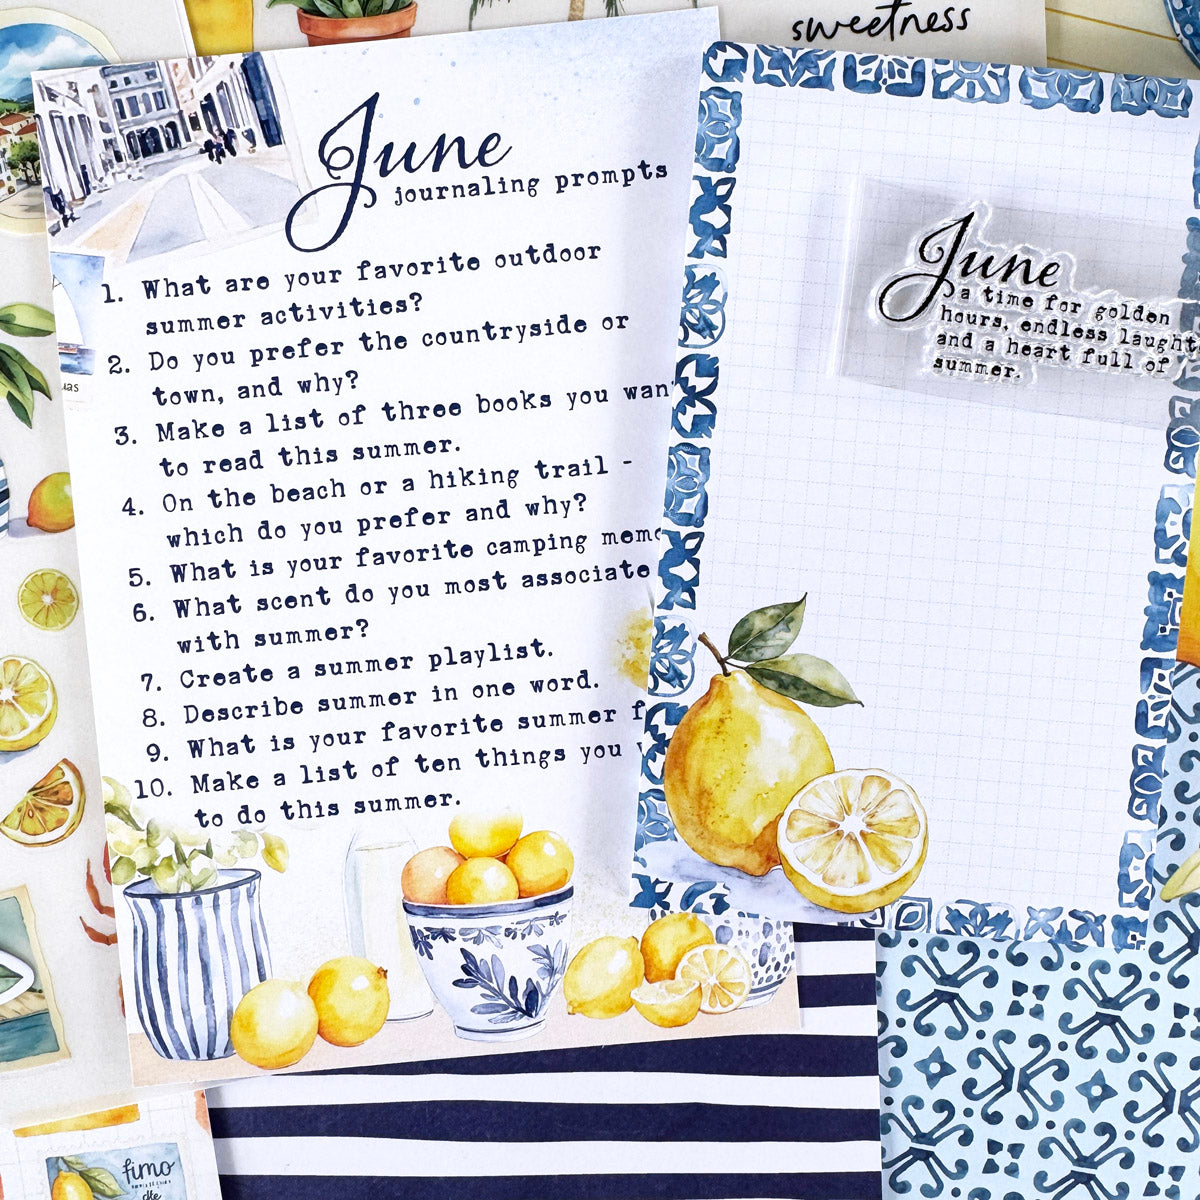 sweetness
June
journaling prompts
1. What are your favorite outdoor
summer activities?
2. Do you prefer the countryside or
town, and why?
3. Make a list of three books you wan
to read this summer.
4. On the beach or a hiking trail -
which do you prefer and why?
5. What is your favorite camping mem
6. What scent do you most associate
with summer?
7. Create a summer playlist.
8. Describe summer in one word.
9. What is your favorite summer f
10. Make a list of ten things you
to do this summer.
June
a time for golden
hours, endless laught
and a heart full of
summer.
uas
fimo